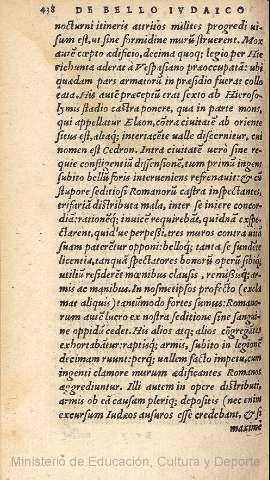 438 DE BELLO IVDAICO
nocturni itineris attritos milites progredi vi-
sum est, ut sine formidine murū struerent. Mox
autē cœpto ædificio, decima quoq; legio per Hie
richunta aderat à Vespasiano præoccupatā: ubi
quædam pars armatorū in præsidio fuerat collo
cata. His autē præceptū erat sexto ab Hieroso-
lymis stadio castra ponere, qua in parte mons,
qui appellatur Elæon, cōtra ciuitatē ab oriente
situs est, abaq; interiacēte ualle discernitur, cui
nomen est Cedron. Intra ciuitatē uerò sine re-
quie confligentiū dissensionē, tum primū ingens
subito bellū foris interueniens refrenauit: & cū
stupore seditiosi Romanorū castra inspectantes,
trifariā distributa mala, inter se iniere concor-
diā: rationēq; inuicē requirebāt, quidnā expe-
ctarent, quid'ue perpessi, tres muros contra uitā
suam paterētur opponi: belloq; tanta se fundēte
licentia, tanquā spectatores bonorū operū sibiq;
utiliū residerēt mœnibus clausis, remissisq; ar-
mis ac manibus. In nosmetipsos profectò (excla
mat aliquis) tantūmodo fortes sumus: Romano-
rum autē lucro ex nostra seditione sine sangui-
ne oppidū cedet. His alios atq; alios cōgregātes
exhortabātur: raptisq; armis, subito in legionē
decimam ruunt: perq; uallem facto impetu, cum
ingenti clamore murum ædificantes Romanos
aggrediuntur. Illi autem in opere distributi,
armis ob eā causam pleriq; depositis (nec enim
excursum Iudæos ausuros esse credebant, & si
maximè
Ministerio de Educación, Cultura y Deporte